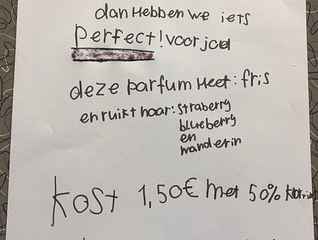 dan Hebben we iets
perfect! voor jou
deze parfum Heet: fris
en ruikt naar: straberry
blueberry
en
manderin
kost 1,50€ met 50%